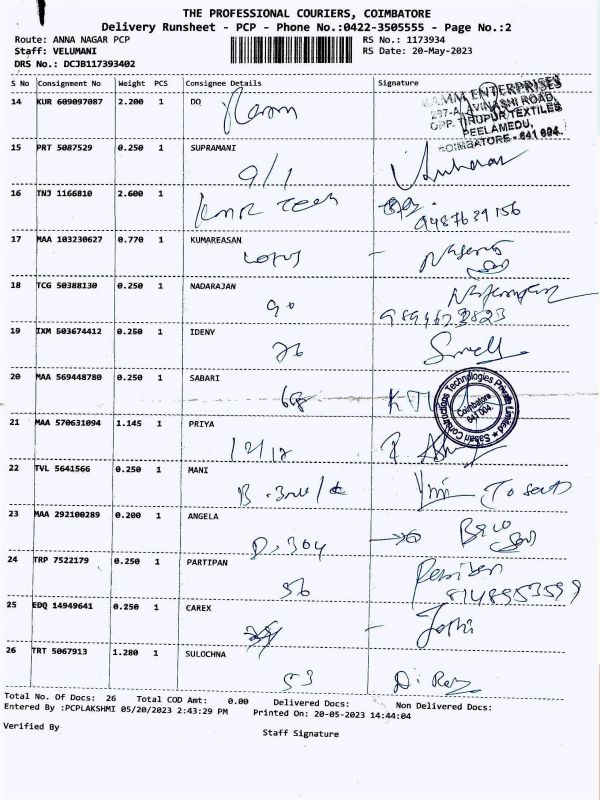 THE PROFESSIONAL COURIERS, COIMBATORE
Delivery Runsheet - PCP - Phone No.:0422-3505555 - Page No.:2
Route: ANNA NAGAR PCP RS No.: 1173934
Staff: VELUMANI RS Date: 20-May-2023
DRS No.: DCJB117393402
S No Consignment No Weight PCS Consignee Details Signature
14 KUR 609097087 2.200 1 DO
ENTERPRISES
AVINASHI ROAD,
OPP. TIRUPUR TEXTILES
PEELAMEDU,
COIMBATORE - 641 004.
15 PRT 5087529 0.250 1 SUPRAMANI
9/1
16 TNJ 1166810 2.600 1 KMR Tech
9487639156
17 MAA 103230627 0.770 1 KUMAREASAN
Lotus
18 TCG 50388130 0.250 1 NADARAJAN
90
19 IXM 503674412 0.250 1 IDENY
76
20 MAA 569448780 0.250 1 SABARI
68
Saban Constructions Technologies Private Limited
Coimbatore
641 004.
21 MAA 570631094 1.145 1 PRIYA
22 TVL 5641566 0.250 1 MANI
23 MAA 292100289 0.200 1 ANGELA
D. 304
24 TRP 7522179 0.250 1 PARTIPAN
56 8148953599
25 EDQ 14949641 0.250 1 CAREX
26 TRT 5067913 1.280 1 SULOCHNA
53
Total No. Of Docs: 26 Total COD Amt: 0.00 Delivered Docs: Non Delivered Docs:
Entered By :PCPLAKSHMI 05/20/2023 2:43:29 PM Printed On: 20-05-2023 14:44:04
Verified By Staff Signature